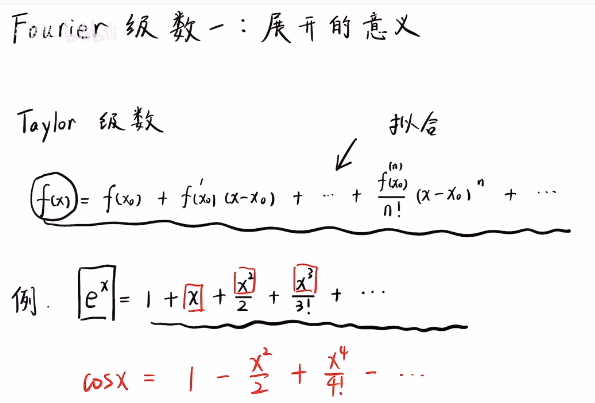 Fourier 级数一：展开的意义
Taylor 级数 拟合
f(x) = f(x₀) + f'(x₀) (x-x₀) + ... + f⁽ⁿ⁾(x₀)/n! (x-x₀)ⁿ + ...
例. eˣ = 1 + x + x²/2 + x³/3! + ...
cosx = 1 - x²/2 + x⁴/4! - ...